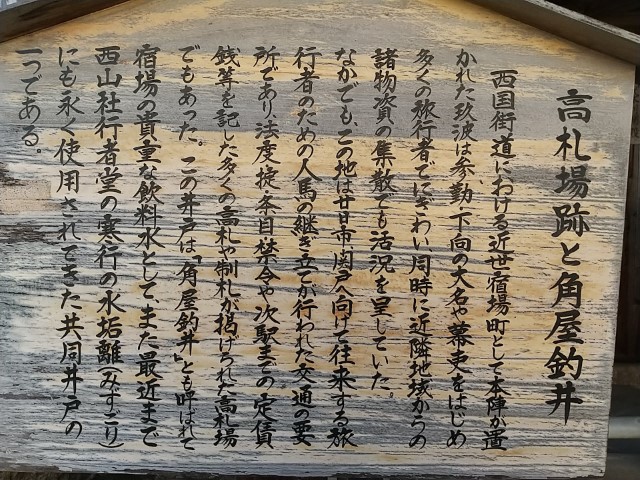 高札場跡と角屋釣井
西国街道における近世宿場町として本陣が置
かれた玖波は参勤、下向の大名や幕吏をはじめ
多くの旅行者でにぎわい、同時に近隣地域からの
諸物資の集散でも活況を呈していた。
なかでも、この地は廿日市、関戸へ向けて往来する旅
行者のための人馬の継ぎ立てが行われた交通の要
所であり、法度掟条目禁令や次駅までの定賃
銭等を記した多くの高札や制札が掲げられた高札場
でもあった。この井戸は「角屋釣井」とも呼ばれて
宿場の貴重な飲料水として、また最近まで
西山社行者堂の寒行の水垢離(みずごり)
にも永く使用されてきた共同井戸の
一つである。